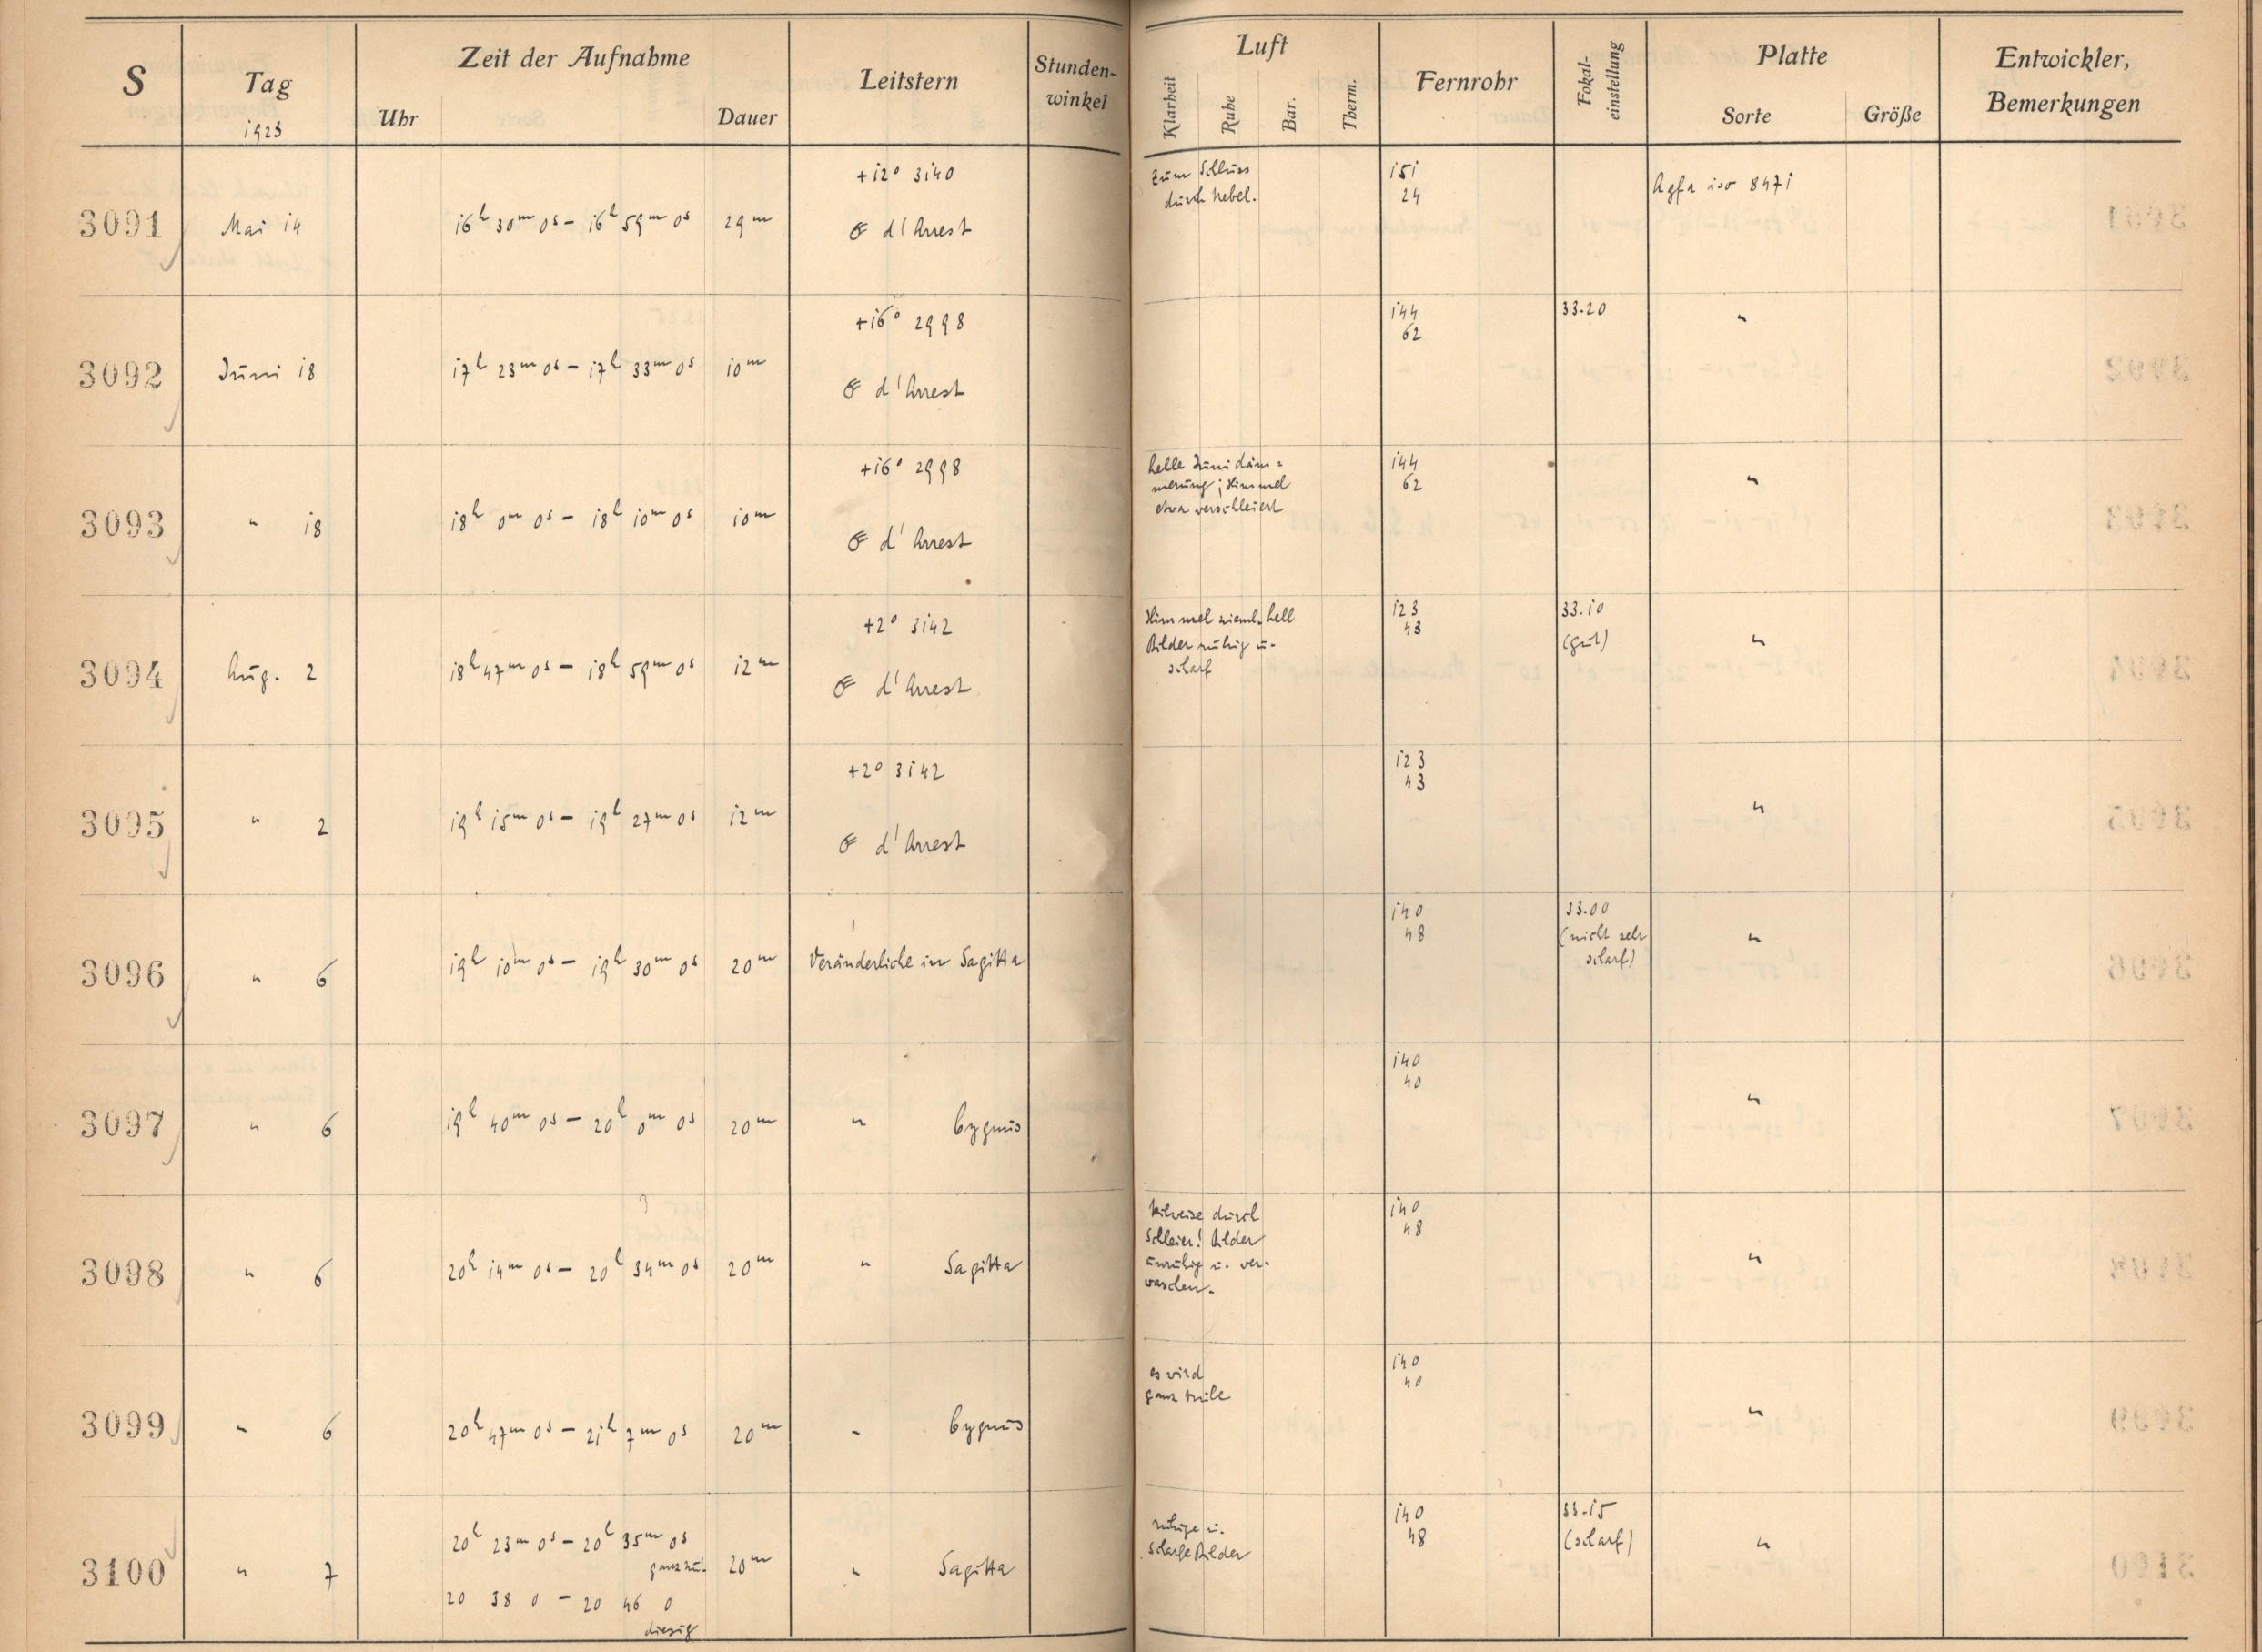 S Tag Zeit der Aufnahme Leitstern Stunden-winkel Luft Fernrohr Fokal-einstellung Platte Entwickler, Bemerkungen
1923 Uhr Dauer Klarheit Ruhe Bar. Therm. Sorte Größe
3091 Mai 14 16h 30m 0s – 16h 59m 0s 29m +12° 3140
d'Arrest
zum Schluss
durch Nebel.
151
24
Agfa iso 8471
3092 Juni 18 17h 23m 0s – 17h 33m 0s 10m +16° 2998
d'Arrest
144
62
33.20 "
3093 " 18 18h 0m 0s – 18h 10m 0s 10m +16° 2998
d'Arrest
helle Junidäm=
merung; Himmel
etwa verschleiert
144
62
"
3094 Aug. 2 18h 47m 0s – 18h 59m 0s 12m +2° 3142
d'Arrest
Himmel zieml. hell
Bilder ruhig u.
scharf
123
43
33.10
(gut)
"
3095 " 2 19h 15m 0s – 19h 27m 0s 12m +2° 3142
d'Arrest
123
43
"
3096 " 6 19h 10m 0s – 19h 30m 0s 20m Veränderliche in Sagitta
140
48
33.00
(nicht sehr
scharf)
"
3097 " 6 19h 40m 0s – 20h 0m 0s 20m " Cygnus
140
40
"
3098 " 6 20h 14m 0s – 20h 34m 0s 20m " Sagitta
teilweise durch
Schleier! Bilder
unruhig u. ver-
waschen.
140
48
"
3099 " 6 20h 47m 0s – 21h 7m 0s 20m " Cygnus
es wird
ganz trübe
140
40
"
3100 " 7 20h 23m 0s – 20h 35m 0s
20 38 0 – 20 46 0
diesig
20m " Sagitta
ruhige u.
scharfe Bilder
140
48
33.15
(scharf)
"